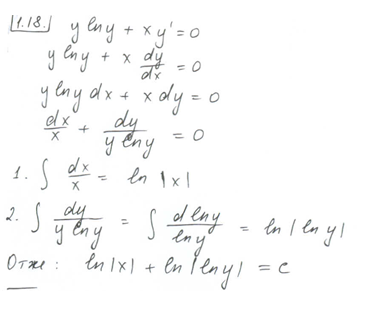 1.18. y ln y + x y' = 0
y ln y + x dy/dx = 0
y ln y dx + x dy = 0
dx/x + dy/(y ln y) = 0
1. ∫ dx/x = ln |x|
2. ∫ dy/(y ln y) = ∫ d ln y/ln y = ln | ln y |
Отже : ln |x| + ln | ln y | = c